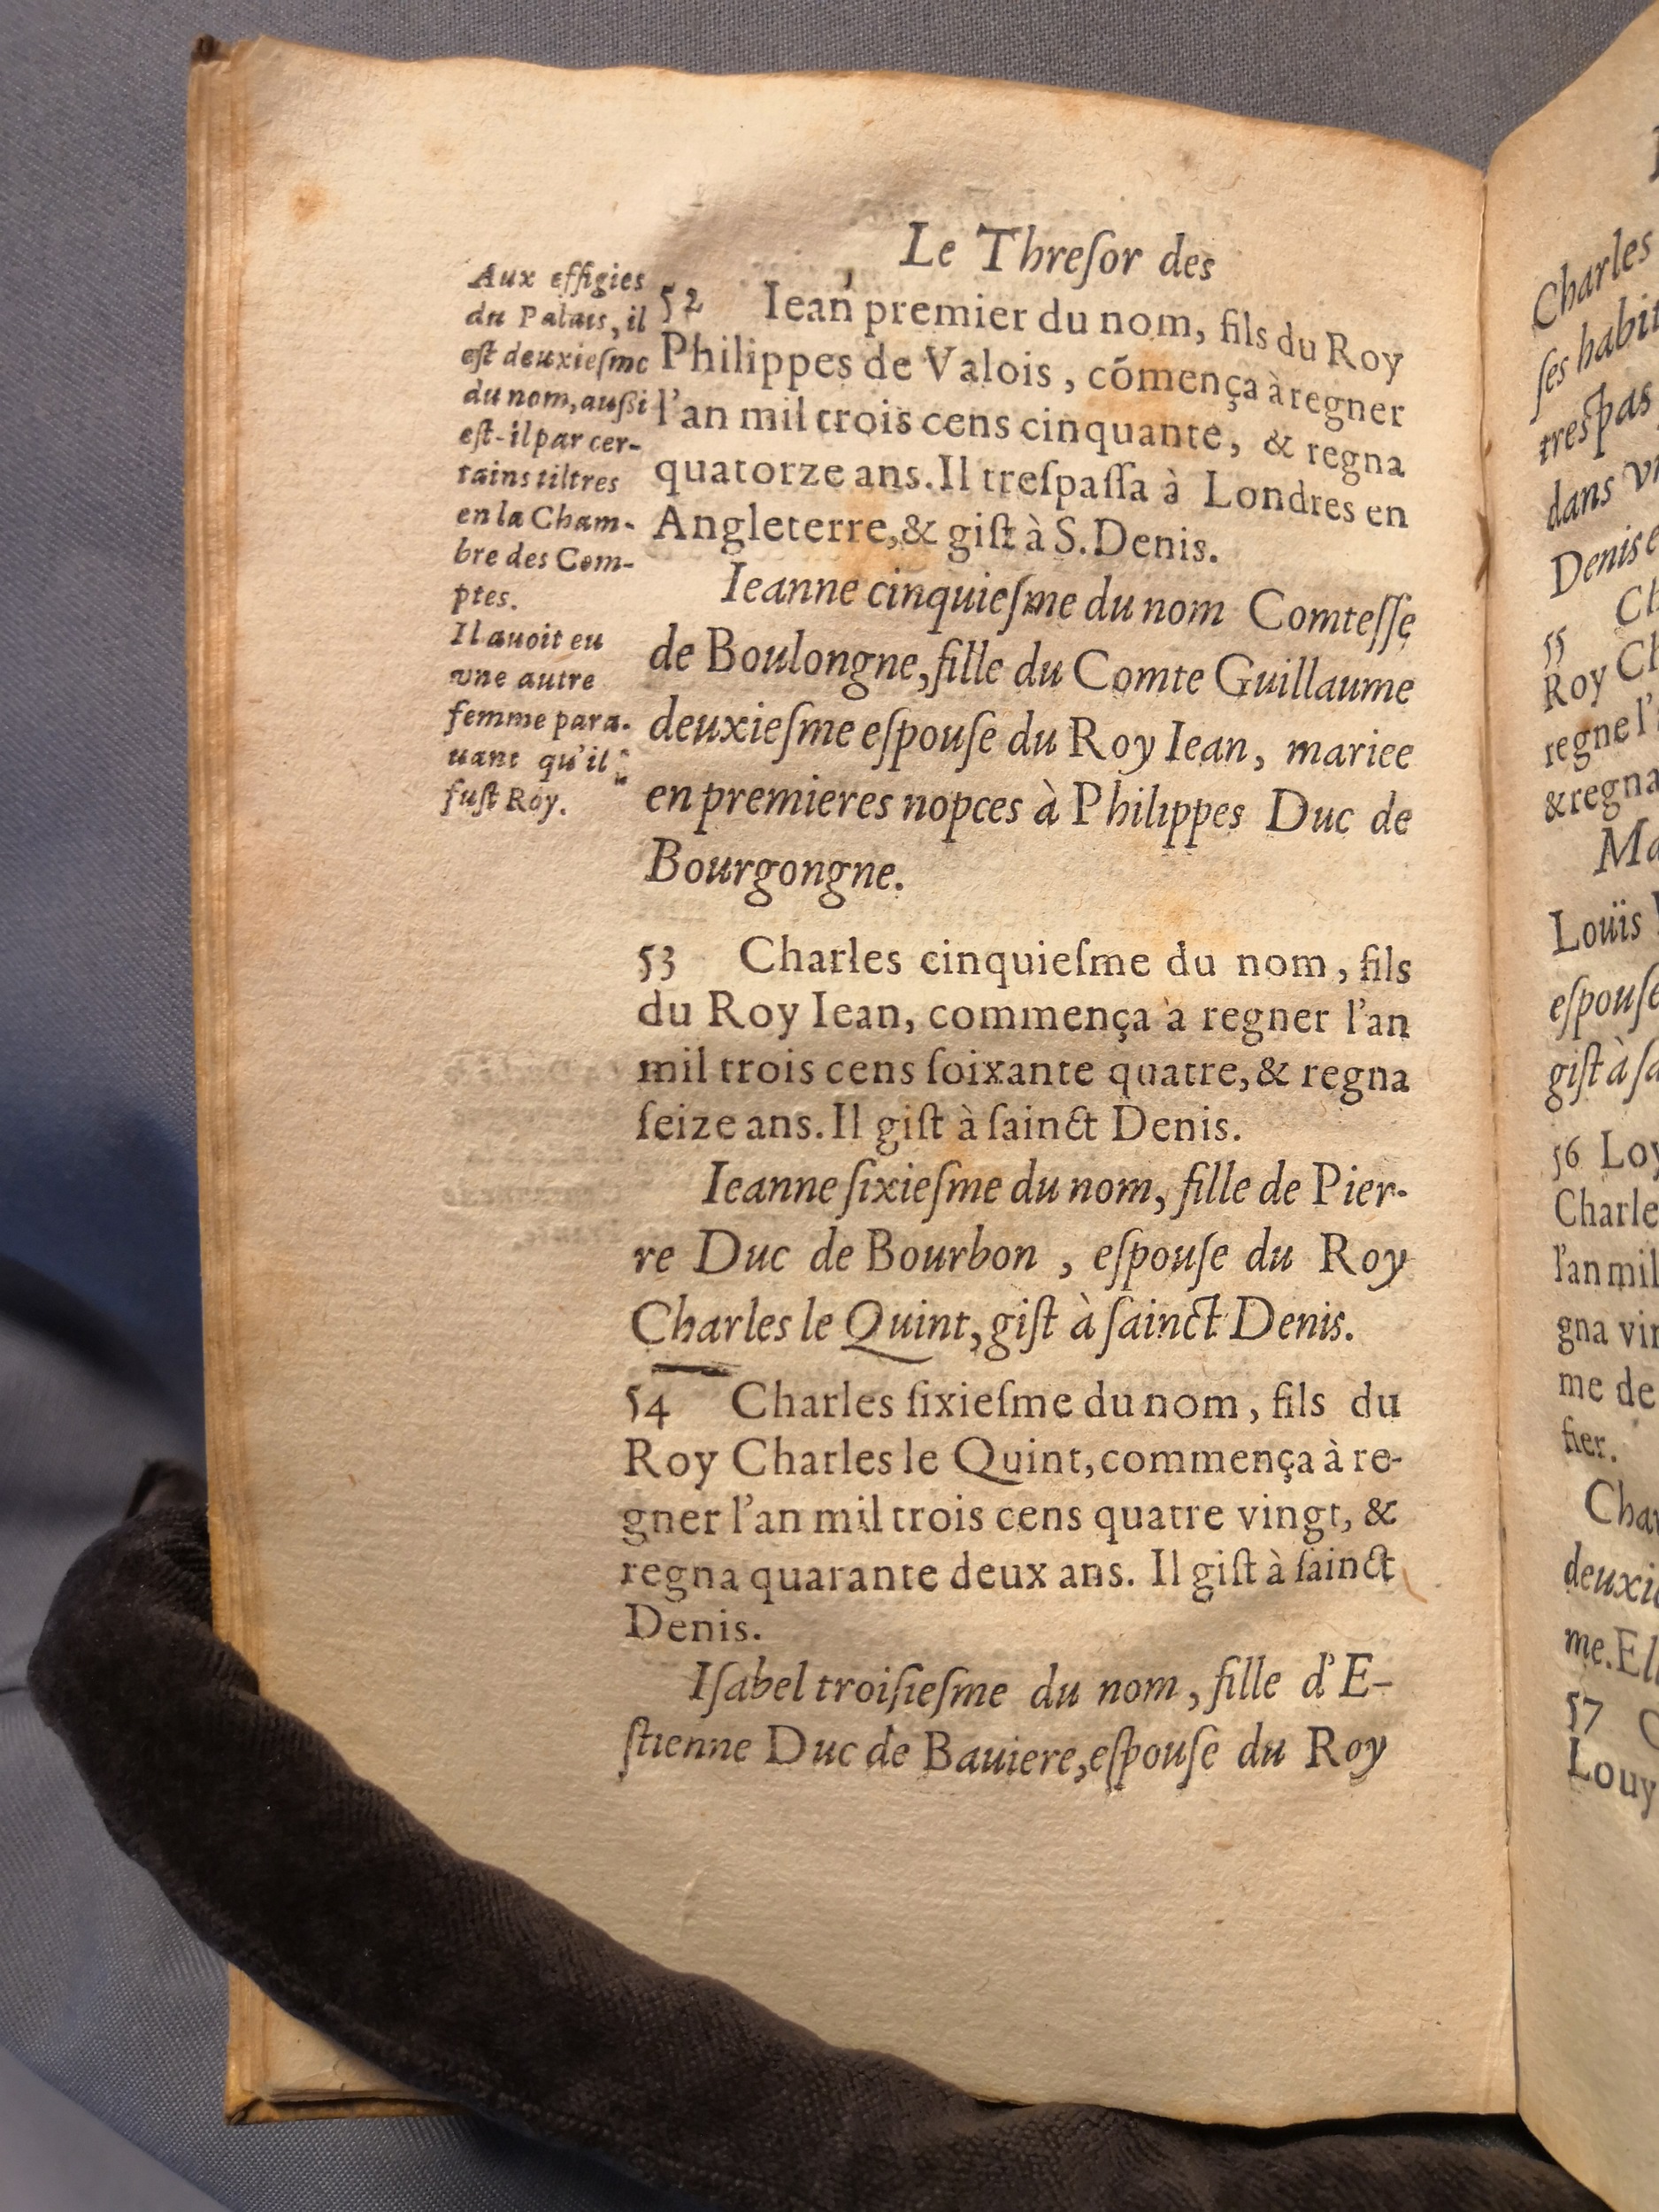 Le Threſor des
Aux effigies
du Palais, il
eſt deuxieſme
du nom, auſsi
eſt-il par cer-
tains tiltres
en la Cham-
bre des Com-
ptes.
Il auoit eu
vne autre
femme para-
uant qu'il
fuſt Roy.
52 Iean premier du nom, fils du Roy
Philippes de Valois, cõmença à regner
l'an mil trois cens cinquante, & regna
quatorze ans. Il treſpaſſa à Londres en
Angleterre, & giſt à S. Denis.
Ieanne cinquieſme du nom Comteſſe
de Boulongne, fille du Comte Guillaume
deuxieſme eſpouſe du Roy Iean, mariee
en premieres nopces à Philippes Duc de
Bourgongne.
53 Charles cinquieſme du nom, fils
du Roy Iean, commença à regner l'an
mil trois cens ſoixante quatre, & regna
ſeize ans. Il giſt à ſainct Denis.
Ieanne ſixieſme du nom, fille de Pier-
re Duc de Bourbon, eſpouſe du Roy
Charles le Quint, giſt à ſainct Denis.
54 Charles ſixieſme du nom, fils du
Roy Charles le Quint, commença à re-
gner l'an mil trois cens quatre vingt, &
regna quarante deux ans. Il giſt à ſainct
Denis.
Iſabel troiſieſme du nom, fille d'E-
ſtienne Duc de Bauiere, eſpouſe du Roy
Charles
ſes habit
treſpas
dans vi
Denis e
55 Ch
Roy Ch
regne l'
& regna
Ma
Louïs
eſpouſe
giſt à ſa
56 Loy
Charle
l'an mil
gna vin
me de
fier.
Char
deuxie
me. Ell
57 C
Louy